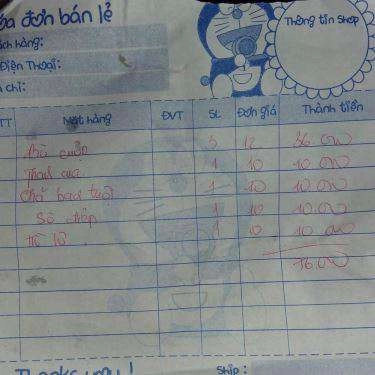 óa đơn bán lẻ
ách hàng:
Điện Thoại:
chỉ:
Thông tin Shop
TT Mặt hàng ĐVT SL Đơn giá Thành tiền
Bò cuộn 3 12 36.000
1 10 10.000
1 10 10.000
1 10 10.000
1 10 10.000
76.000
Thanks you!
Ship: